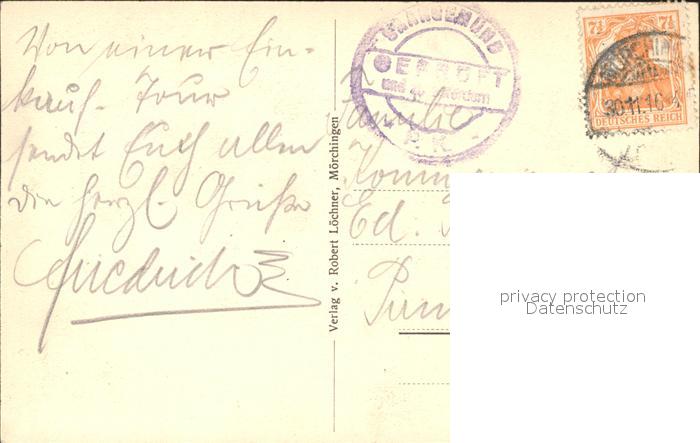 Von einer Ein-
kauf-Tour
sendet Euch allen
die herzl. Grüße
Friedrich
Verlag v. Robert Löchner, Mörchingen
SAARGEMÜND
GEPRÜFT
und zu befördern
P.K.
7½ 7½
DEUTSCHES REICH
30.11.16
Familie
Ed.
privacy protection
Datenschutz